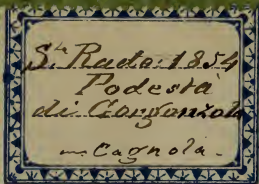 S.ta Rade: 1854
Podestà
di Gorgonzola
Cagnola.